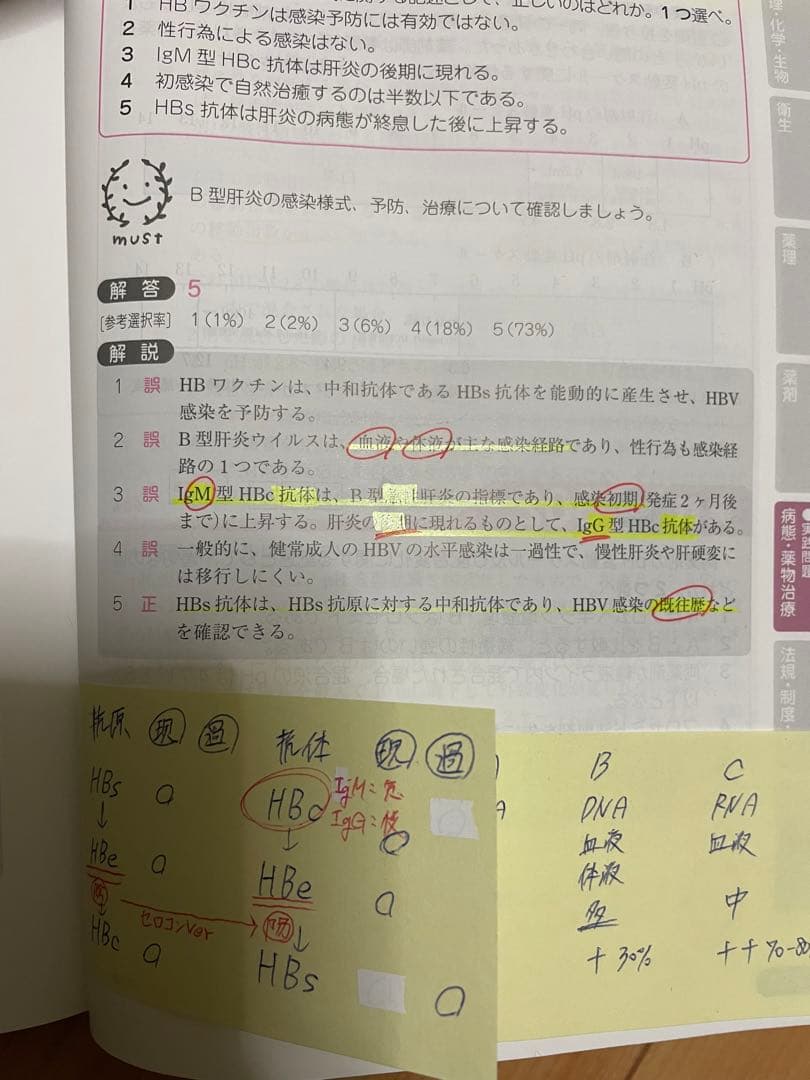 関する記述として、正しいのはどれか。1つ選べ。
1 HBワクチンは感染予防には有効ではない。
2 性行為による感染はない。
3 IgM型HBc抗体は肝炎の後期に現れる。
4 初感染で自然治癒するのは半数以下である。
5 HBs抗体は肝炎の病態が終息した後に上昇する。
must
B型肝炎の感染様式、予防、治療について確認しましょう。
解答 5
[参考選択率] 1(1%) 2(2%) 3(6%) 4(18%) 5(73%)
解説
1 誤 HBワクチンは、中和抗体であるHBs抗体を能動的に産生させ、HBV
感染を予防する。
2 誤 B型肝炎ウイルスは、血液や体液が主な感染経路であり、性行為も感染経
路の1つである。
3 誤 IgM型HBc抗体は、B型 肝炎の指標であり、感染初期(発症2ヶ月後
まで)に上昇する。肝炎の 期に現れるものとして、IgG型HBc抗体がある。
4 誤 一般的に、健常成人のHBVの水平感染は一過性で、慢性肝炎や肝硬変に
は移行しにくい。
5 正 HBs抗体は、HBs抗原に対する中和抗体であり、HBV感染の既往歴など
を確認できる。
抗原 現 過
HBs
↓
HBe
HBc
セロコンver
抗体 現 過
HBc IgM:急
IgG:慢
↓
HBe
↓
HBs
B C
DNA RNA
血液 血液
体液
多 中
+30% ++70-80
理・化学・生物
衛生
薬理
薬剤
●実践問題
病態・薬物治療
法規・制度・